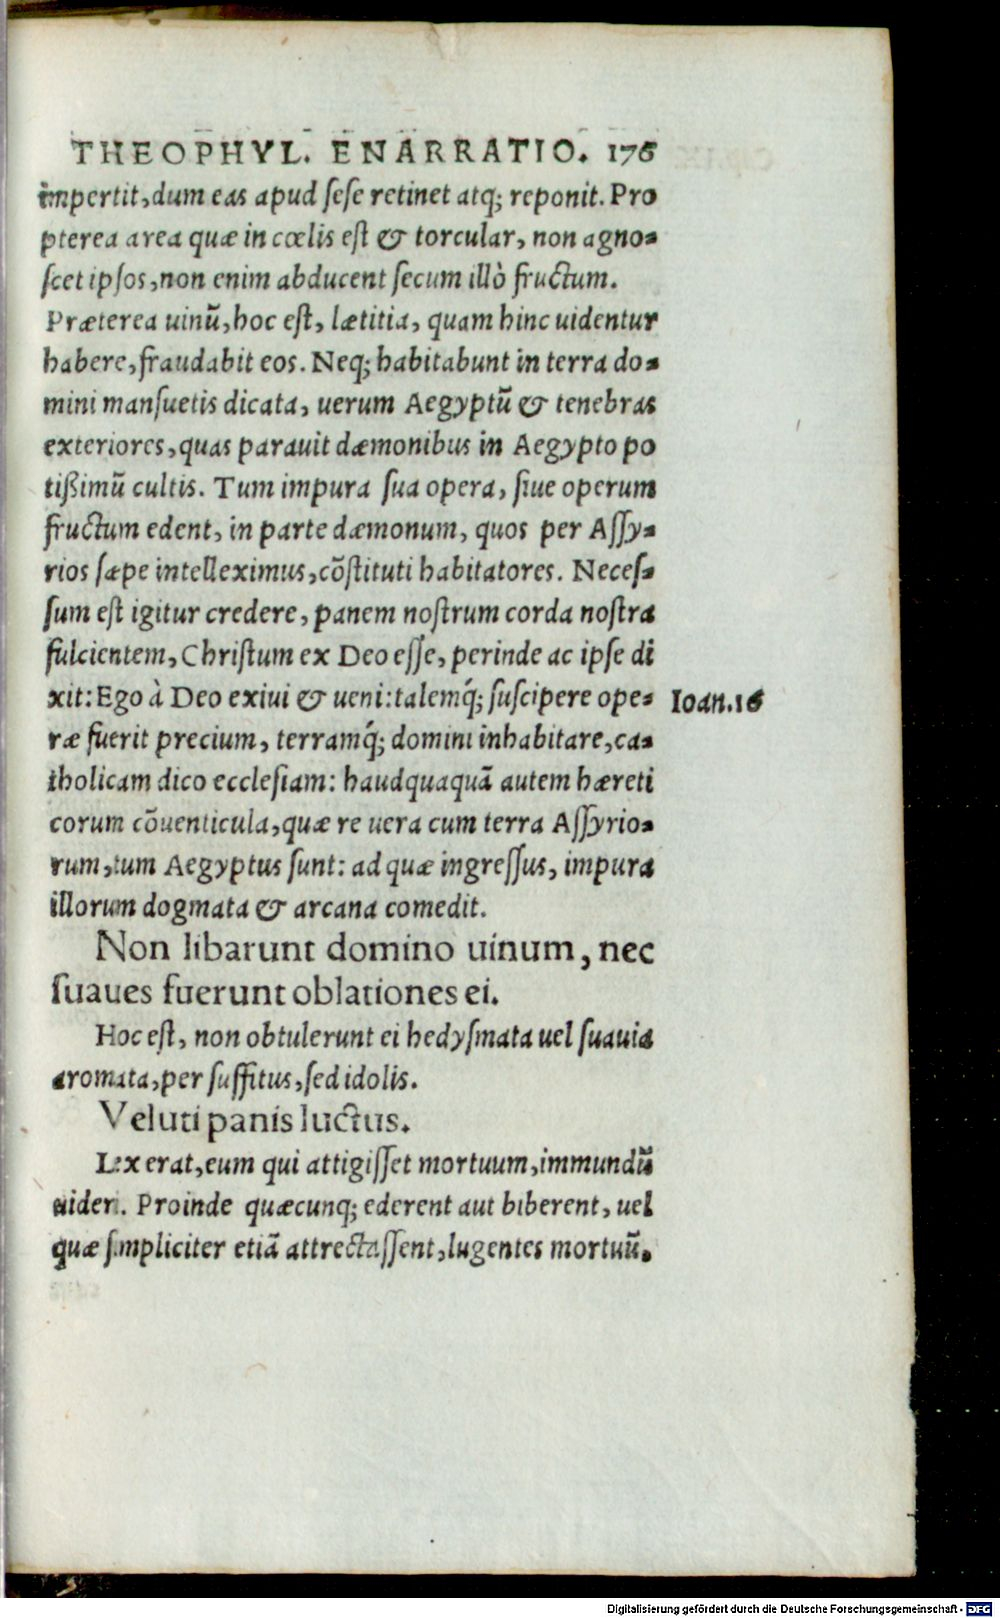 THEOPHYL. ENARRATIO. 176
impertit, dum eas apud ſeſe retinet atq; reponit. Pro
pterea area quæ in cœlis eſt & torcular, non agno-
ſcet ipſos, non enim abducent ſecum illò fructum.
Præterea uinũ, hoc eſt, lætitia, quam hinc uidentur
habere, fraudabit eos. Neq; habitabunt in terra do-
mini manſuetis dicata, uerum Aegyptũ & tenebras
exteriores, quas parauit dæmonibus in Aegypto po
tißimũ cultis. Tum impura ſua opera, ſiue operum
fructum edent, in parte dæmonum, quos per Aſſy-
rios ſæpe intelleximus, cõſtituti habitatores. Neceſ-
ſum eſt igitur credere, panem noſtrum corda noſtra
fulcientem, Chriſtum ex Deo eſſe, perinde ac ipſe di
xit: Ego à Deo exiui & ueni: talemq́; ſuſcipere ope-
Ioan.16
ræ fuerit precium, terramq́; domini inhabitare, ca-
tholicam dico eccleſiam: haudquaquã autem hæreti
corum cõuenticula, quæ re uera cum terra Aſſyrio-
rum, tum Aegyptus ſunt: ad quæ ingreſſus, impura
illorum dogmata & arcana comedit.
Non libarunt domino uinum, nec
ſuaues fuerunt oblationes ei.
Hoc eſt, non obtulerunt ei hedyſmata uel ſuauia
aromata, per ſuffitus, ſed idolis.
Veluti panis luctus.
Lex erat, eum qui attigiſſet mortuum, immundũ
uideri. Proinde quæcunq; ederent aut biberent, uel
quæ ſimpliciter etiã attrectaſſent, lugentes mortuũ.
Digitalisierung gefördert durch die Deutsche Forschungsgemeinschaft - DFG